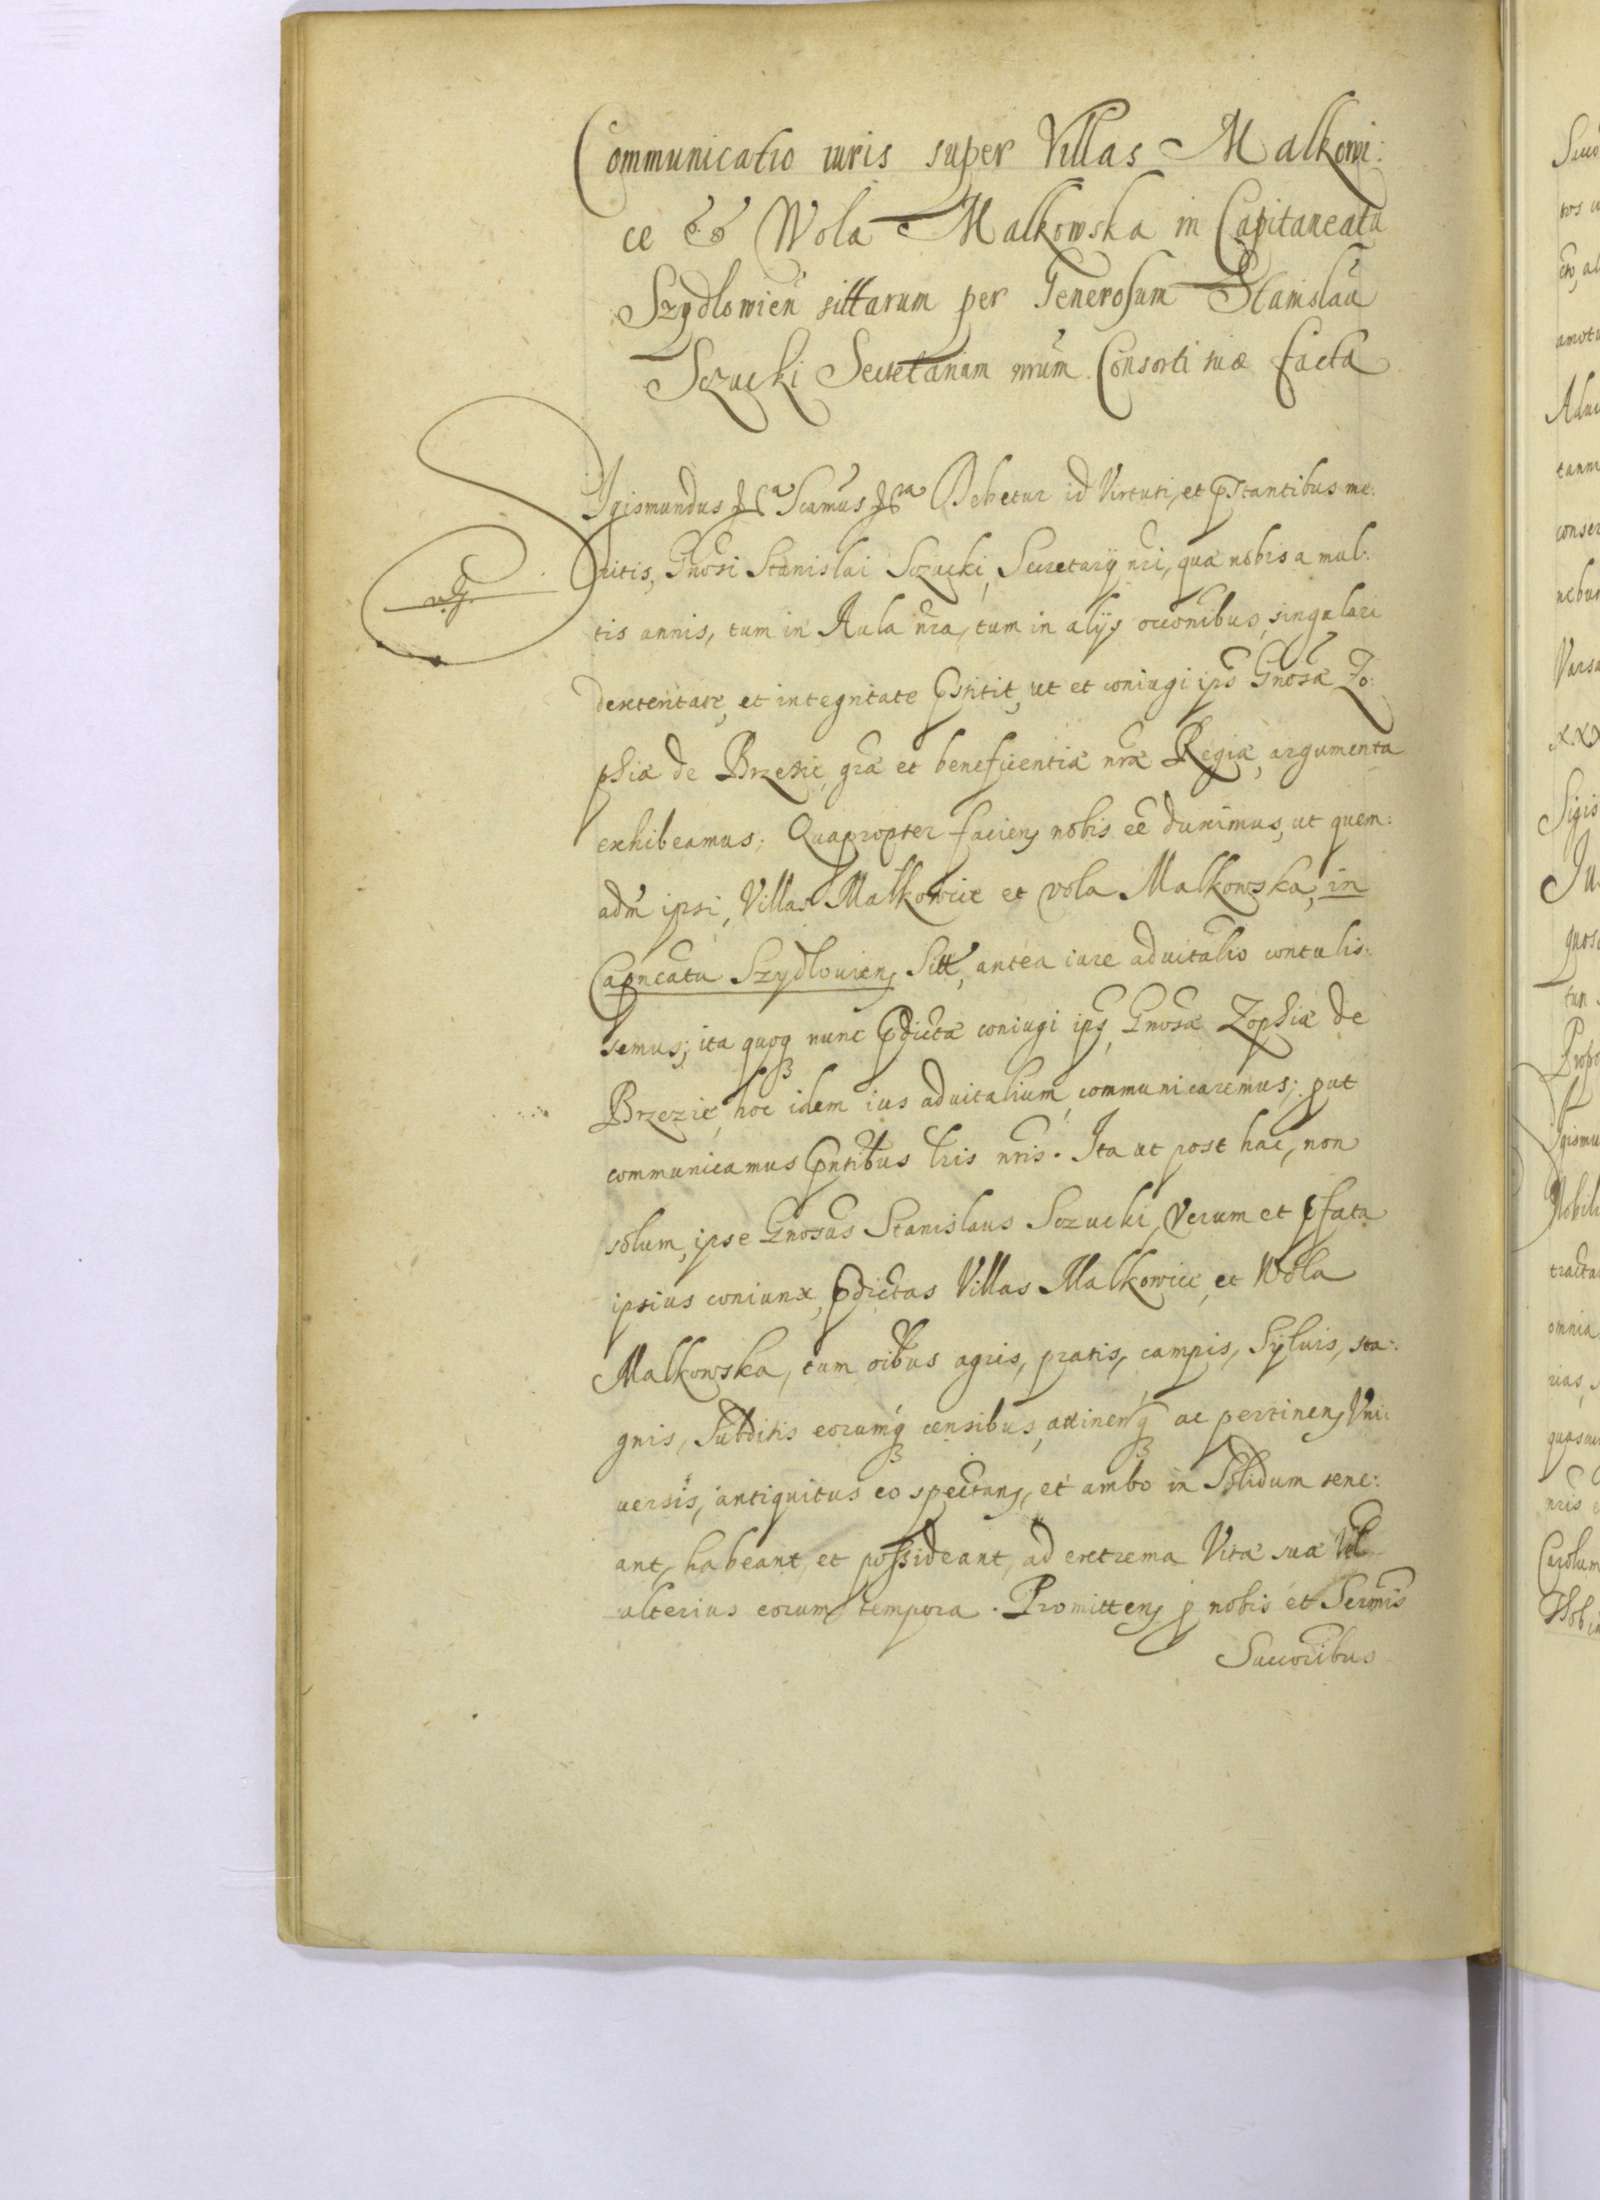 Communicatio iuris super Villas Malkowi:
ce & Wola Malkowska in Capitaneatu
Szydlowień sittarum per Generosum Stanislaū
Sczucki Secretarium nrūm Consorti suæ facta
Sigismundus &ca Scamus &ca Debetur id Virtuti, et pstantibus me:
ritis, Gnōsi Stanislai Sczucki, Secretarij nrī, quæ nobis a mul:
tis annis, tum in Aula nrā, tum in alijs occōnibus, singulari
dexteritate, et integritate pstitit, ut et coniugi ips Gnōsæ Zo:
phiæ de Brzezie, græ et beneficentiæ nræ Regiæ, argumenta
exhibeamus; Quapropter faciens nobis eē duximus, ut quem:
adm̄ ipsi, Villas Malkowice et wola Malkowska, in
Capneatu Szydlowien, Sitt, antea iure aduitalio contulis:
semus; ita quoq nunc pdictæ coniugi ips, Gnosæ Zophiæ de
Brzezie, hoc idem ius aduitalium communicaremus; put
communicamus pntibus lris nris. Ita ut post hac, non
solum, ipse Gnosus Stanislaus Sczucki, Verum et pfata
ipsius coniunx, pdictas Villas Malkowice, et Wola
Malkowska, cum oibus agris, pratis, campis, Syluis, sta:
gnis, Subditis eorumq censibus, attinenq ac pertinen, Vni:
uersis, antiquitus eo spectan, et ambo in Solidum tene:
ant, habeant, et possideant, ad extrema Vitæ suæ Vel
alterius eorum tempora. Promitten, p nobis et Sermis
Succoribus